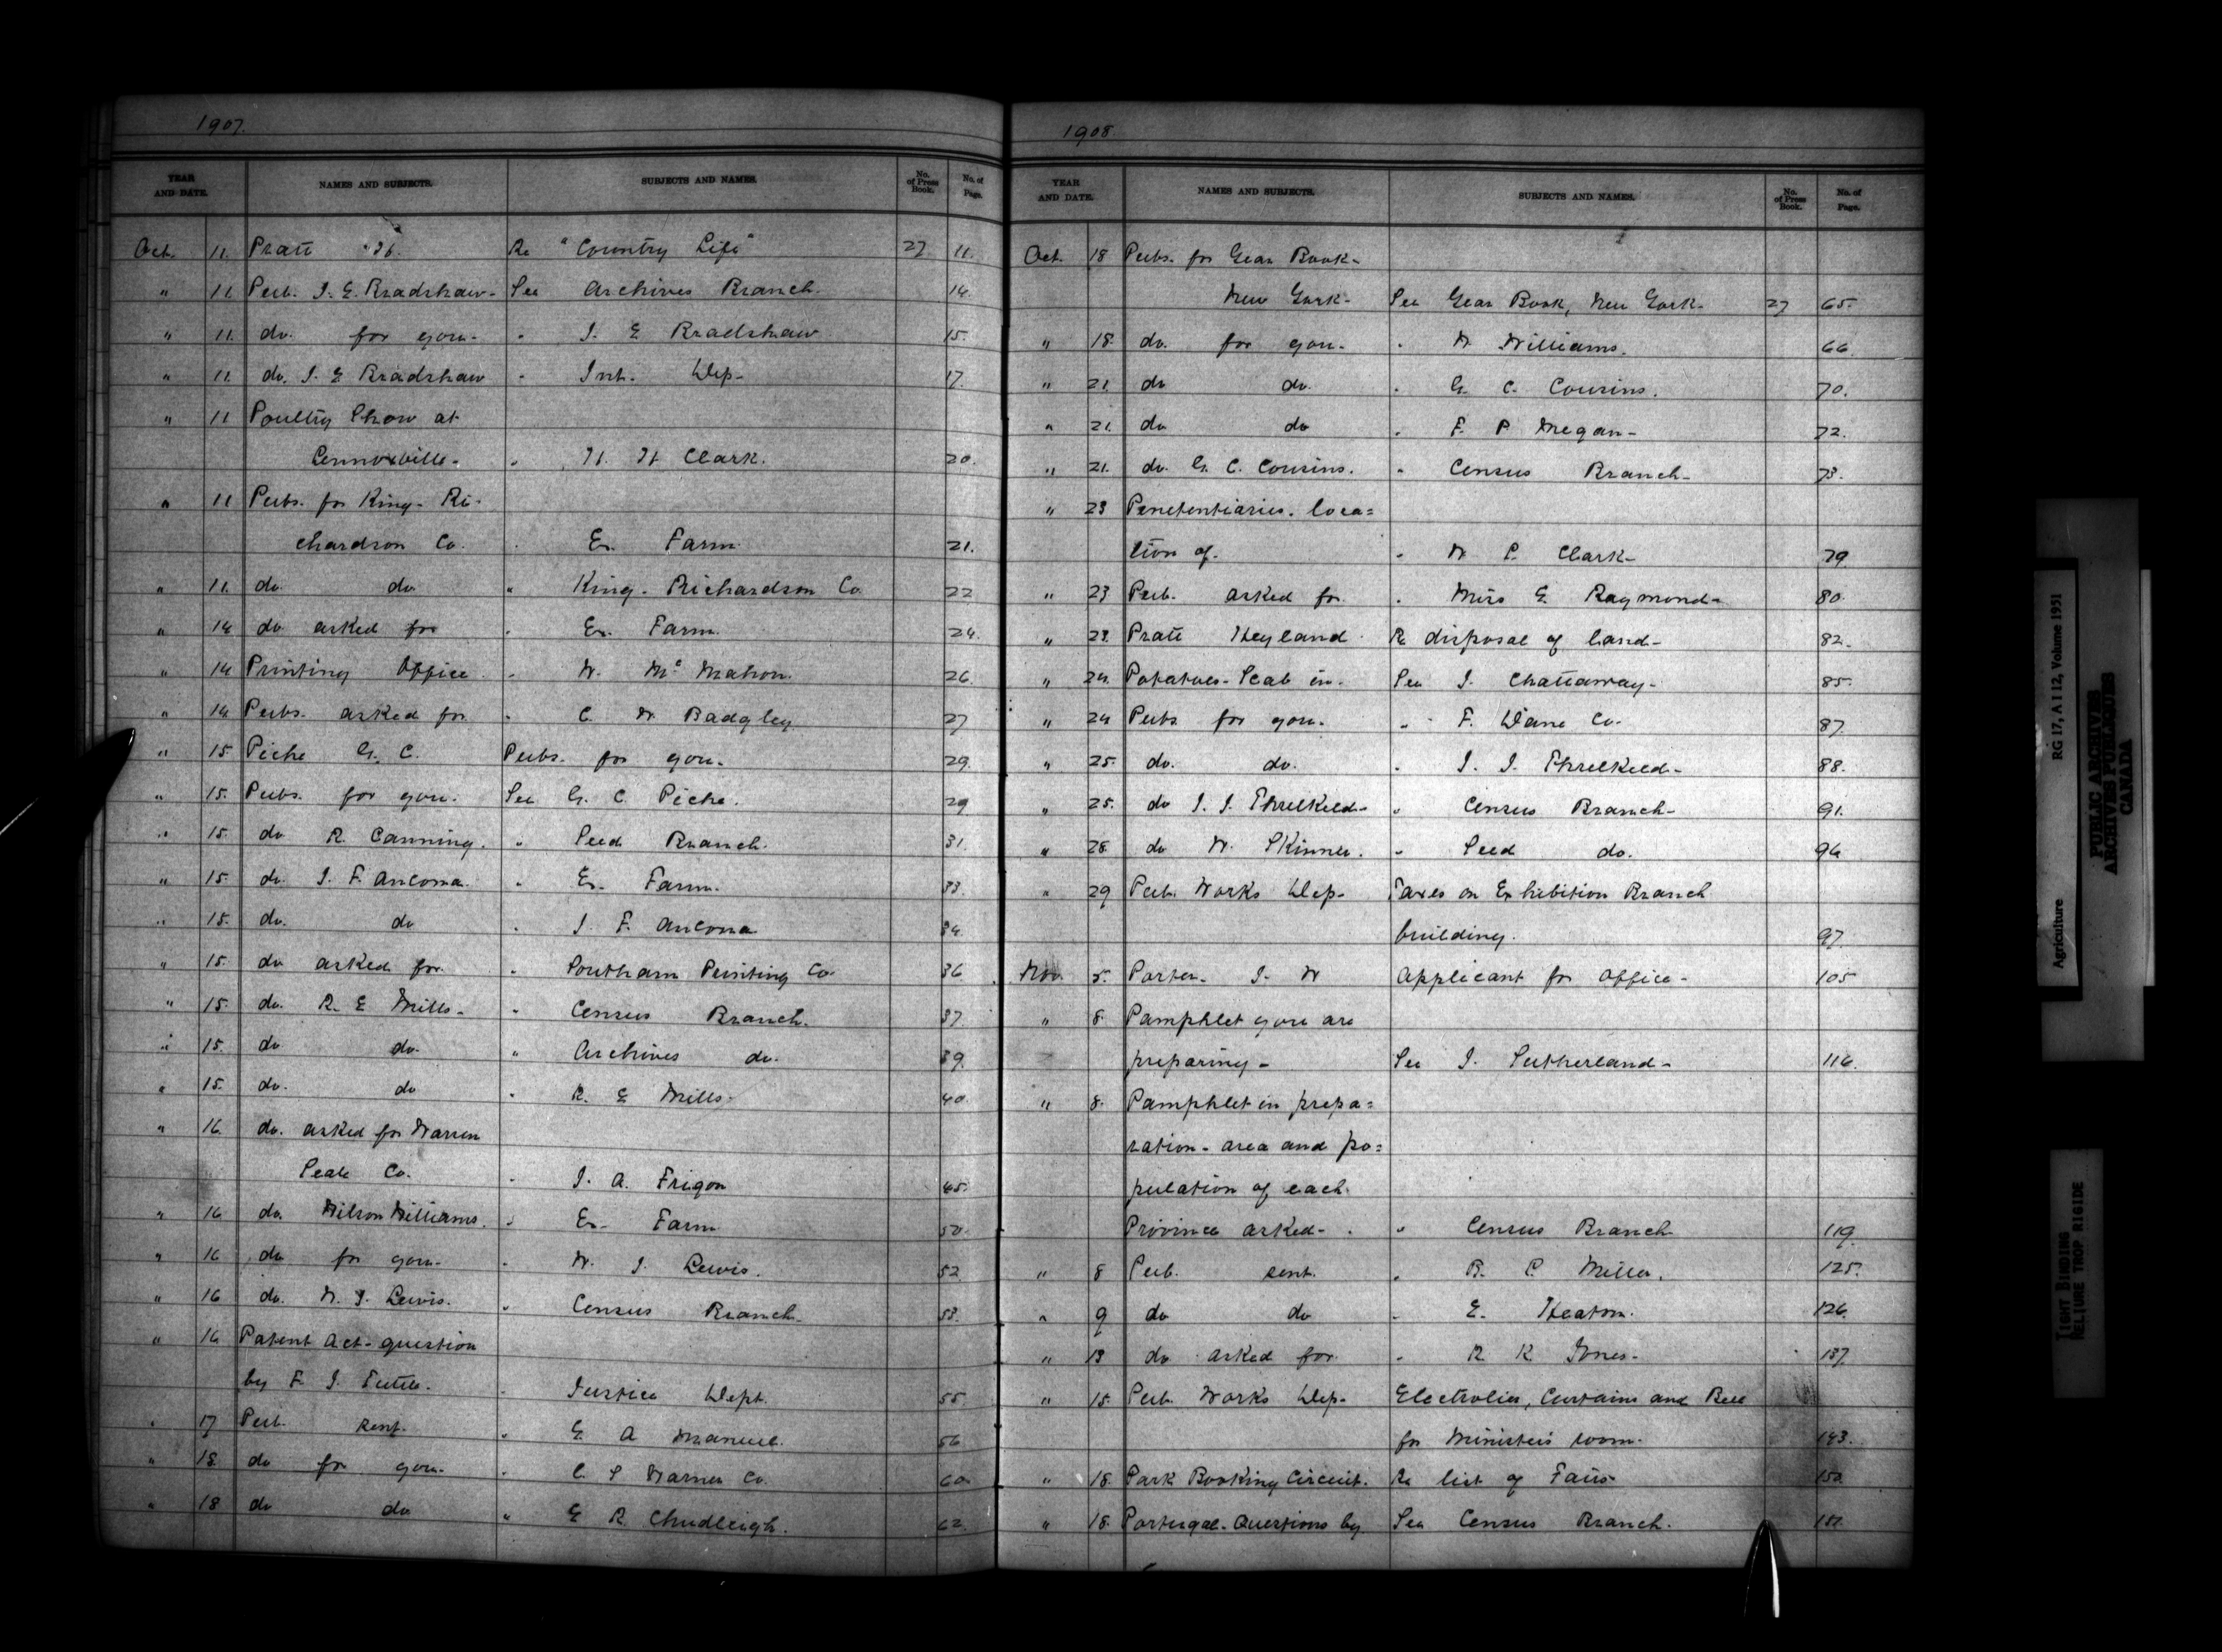 1907.
YEAR AND DATE. NAMES AND SUBJECTS. SUBJECTS AND NAMES. No. of Press Book. No. of Page.
Oct. 11. Pratt H. Re "Country Life" 27 11.
" 11. Pub. J. E. Bradshaw- See Archives Branch. 14
" 11. do. for you- " J. E Bradshaw 15.
" 11. do. J. E Bradshaw " Int. Dep- 17
" 11 Poultry Show at
Lennoxville- " H. H Clark. 20.
" 11 Pubs. for King- Ri-
chardson Co. " Ex. Farm. 21.
" 11. do. do " King- Richardson Co. 22
" 14 do asked for " Ex. Farm. 24.
" 14 Printing Office " W. Mc Mahon. 26.
" 14 Pubs. asked for " C. W. Badgley 27
" 15 Piche G. C. Pubs. for you- 29.
" 15. Pubs. for you. See G. C. Piche. 29
" 15. do R. Canning. " Seed Branch. 31.
" 15. do. J. F. Ancona. " Ex. Farm. 33.
" 15. do. do " J. F. Ancona 34.
" 15. do asked for " Southam Printing Co. 36
" 15. do. R. E Mills- " Census Branch. 37.
" 15. do do. " Archives do. 39.
" 15. do. do " R. E Mills- 40.
" 16. do. asked for Warren
Seale Co. " J. A. Frigon 45.
" 16 do. Wilson Williams. " Ex- Farm 50.
" 16 do for you- " W. J. Lewis. 52
" 16 do. W. J. Lewis. " Census Branch. 53.
" 16 Patent Act- question
by F. J. Tuttle. " Justice Dept. 55.
" 17 Pub. sent. " E A Manuel. 56
" 18. do for you- " C. S Warner Co. 60.
" 18 do do " E R. Chudleigh. 62.
1908.
YEAR AND DATE. NAMES AND SUBJECTS. SUBJECTS AND NAMES. No. of Press Book. No. of Page.
Oct. 18 Pubs. for Year Book-
New York- See Year Book, New York- 27 65.
" 18. do. for you- " W Williams. 66.
" 21. do do. " G. C. Cousins. 70.
" 21. do do " F. P Megan- 72.
" 21. do. G. C. Cousins. " Census Branch- 73.
" 23 Penetentiaries. loca=
tion of. " W P. Clark- 79
" 23 Pub. asked for " Miss E. Raymond- 80.
" 23. Pratt Heyland Re disposal of land- 82.
" 24. Potatoes- Scab in. See J. Chattaway- 85.
" 24 Pubs for you. " F. Dane Co. 87.
" 25. do. do. " J. J. Threlkeld- 88.
" 25. do J. J. Threlkeld- " Census Branch- 91.
" 28. do W. Skinner. " Seed do. 94
" 29 Pub. Works Dep- Taxes on Exhibition Branch
building. 97.
Nov. 5. Porter- J. W Applicant for Office- 105
" 8. Pamphlet you are
preparing- See J. Sutherland- 116.
" 8. Pamphlet in prepa=
ration- area and po=
pulation of each
Province asked- " Census Branch 119.
" 8 Pub. sent. " R. P. Miller. 125.
" 9 do do " E. Heaton. 126.
" 13 do asked for " R K Jones- 137.
" 15. Pub. Works Dep- Electrolier, Curtains and Bell
for Minister's room- 143.
" 18. Park Booking Circuit. Re list of Fairs 150.
" 18. Portugal- Questions by See Census Branch. 151.
Agriculture RG 17, A I 12, Volume 1951
PUBLIC ARCHIVES
ARCHIVES PUBLIQUES
CANADA
TIGHT BINDING
RELIURE TROP RIGIDE